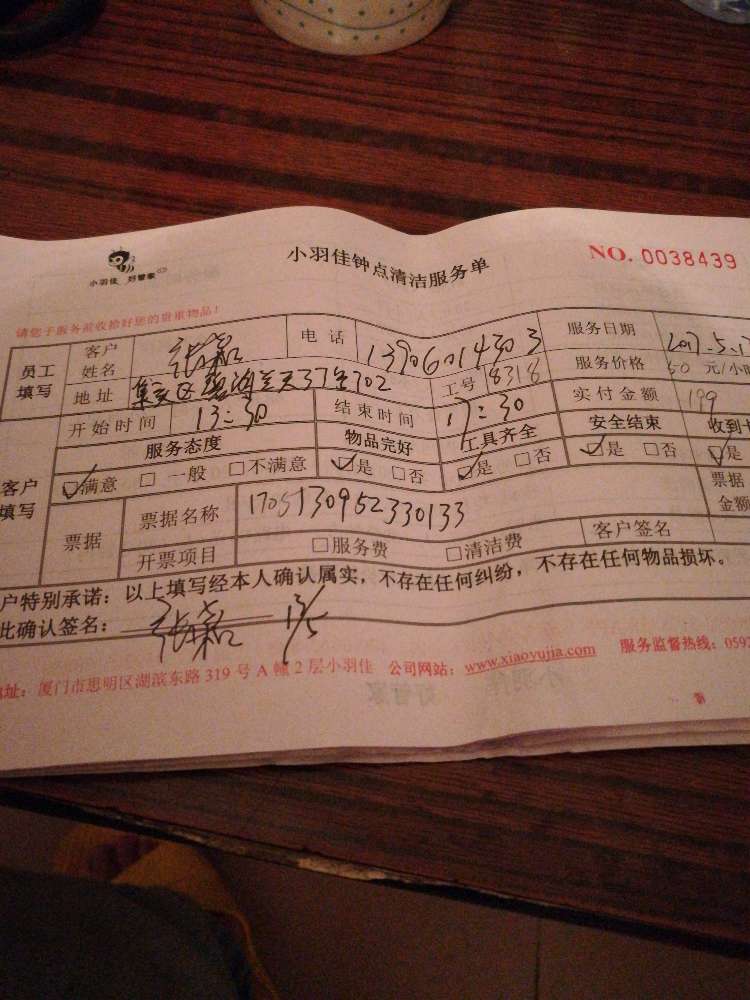 小羽佳 好管家
小羽佳钟点清洁服务单
NO. 0038439
请您于服务前收拾好您的贵重物品！
员工填写 客户姓名 张嘉 电话 13906014303 服务日期 2017.5.1
地址 集美区 37 702 工号 8318 服务价格 50 元/小
开始时间 13:30 结束时间 17:30 实付金额 199
服务态度 物品完好 工具齐全 安全结束 收到
客户填写 ☑满意 □一般 □不满意 ☑是 □否 ☑是 □否 ☑是 □否 ☑是
票据 票据名称 1705130952330133 票据金额
开票项目 □服务费 □清洁费 客户签名
户特别承诺：以上填写经本人确认属实，不存在任何纠纷，不存在任何物品损坏。
此确认签名：张嘉 13/5
址：厦门市思明区湖滨东路 319 号 A 幢 2 层小羽佳 公司网站：www.xiaoyujia.com 服务监督热线：0592